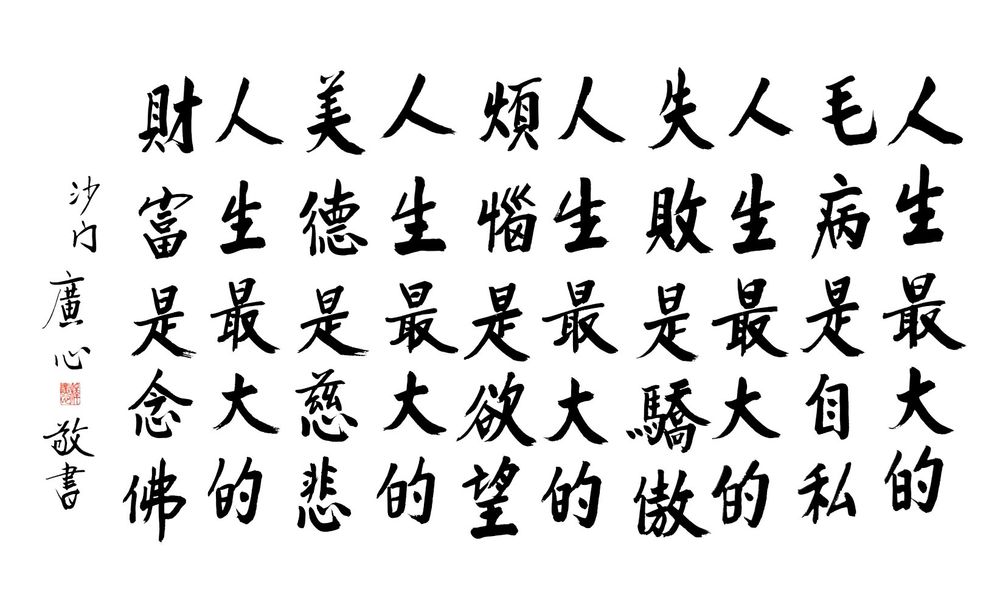 人生最大的
毛病是自私
人生最大的
失敗是驕傲
人生最大的
煩惱是欲望
人生最大的
美德是慈悲
人生最大的
財富是念佛
沙门廣心敬書